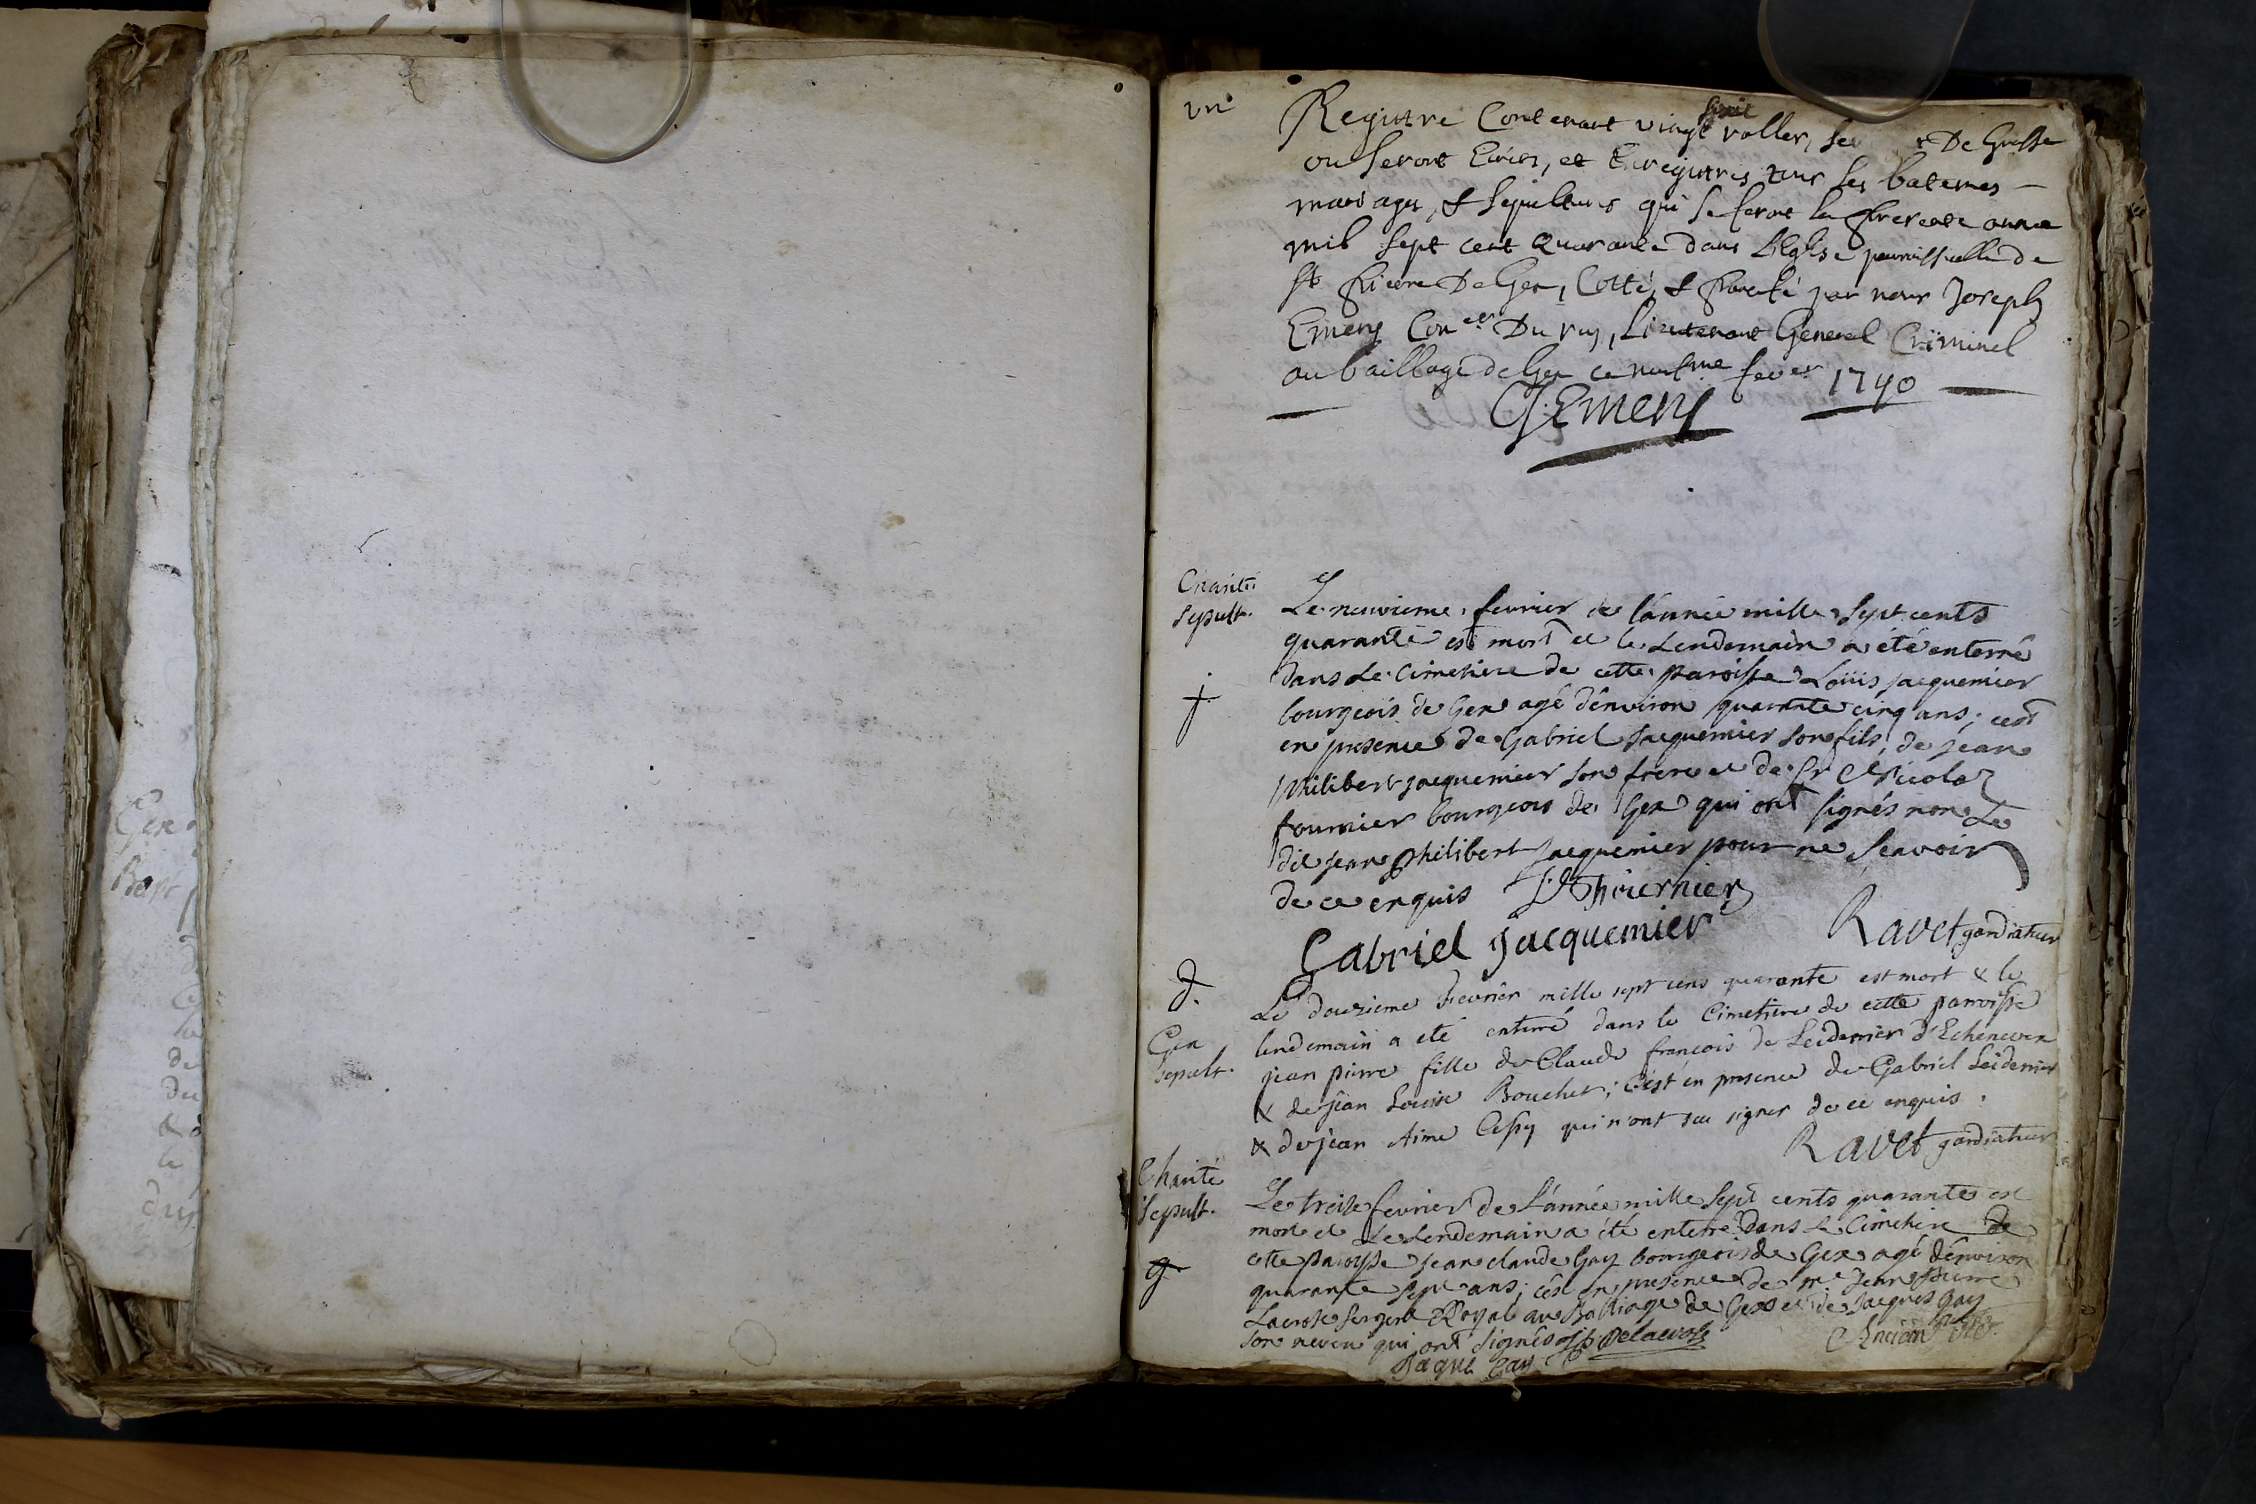 un
Registre Contenant vingt huit rolles, De Grosse
ou seront Ecrits, et Enregistrés tous les batemes
mariages, & sepultures qui se feront la presente annee
mil sept cent Quarante dans L'Eglise parroissialle de
St pierre De Gex, Cotté, & paraffé par nous Joseph
Emery Con.er Du roy, Lieutenant General Criminel
au bailliage de Gex ce neufme fever 1740
J: Emery
Charité
sepult.
Le neuvieme fevrier de l'année mille sept cents
quarante est mort et le Lendemain a été enterré
dans Le cimetiere de cette paroisse Loüis jacquemier
bourgeois de Gex agé d'environ quarante cinq ans; cest
en presence de Gabriel Jacquemier son fils, de jean
philibert jacquemier son frere et de Sr Nicolas
fournier bourgeois de Gex qui ont signés non Le
dit jean philibert jacquemier pour ne sçavoir
de ce enquis Fournier
Gabriel Jacquemier Ravet gardiateur
d.
Gex
sepult.
Le douzieme fevrier mille sept cens quarante est mort & le
lendemain a eté enterré dans le Cimetiere de cette parroisse
jean pierre fille de Claude françois de Leiderrier d'Echenevex
& de jean Louise Bouchet; c'est en presence de Gabriel Leiderrier
& de jean Aimé Cessy qui n'ont sçu signer de ce enquis.
Ravet gardiateur
Charité
sepult.
g.
Le treize fevrier de L'année mille sept cents quarante est
mort et Le Lendemain a été enterré dans Le Cimetiere de
cette paroisse jean claude Gay bourgeois de Gex agé d'environ
quarante sept ans; c'est en presence de me Jean pierre
Lacroix sergent Royal au Balliage de Gex et de Jacques Gay
son neveu qui ont signés J:P: Delacroix Ancian
Jaque Gay
Gex
Bapt